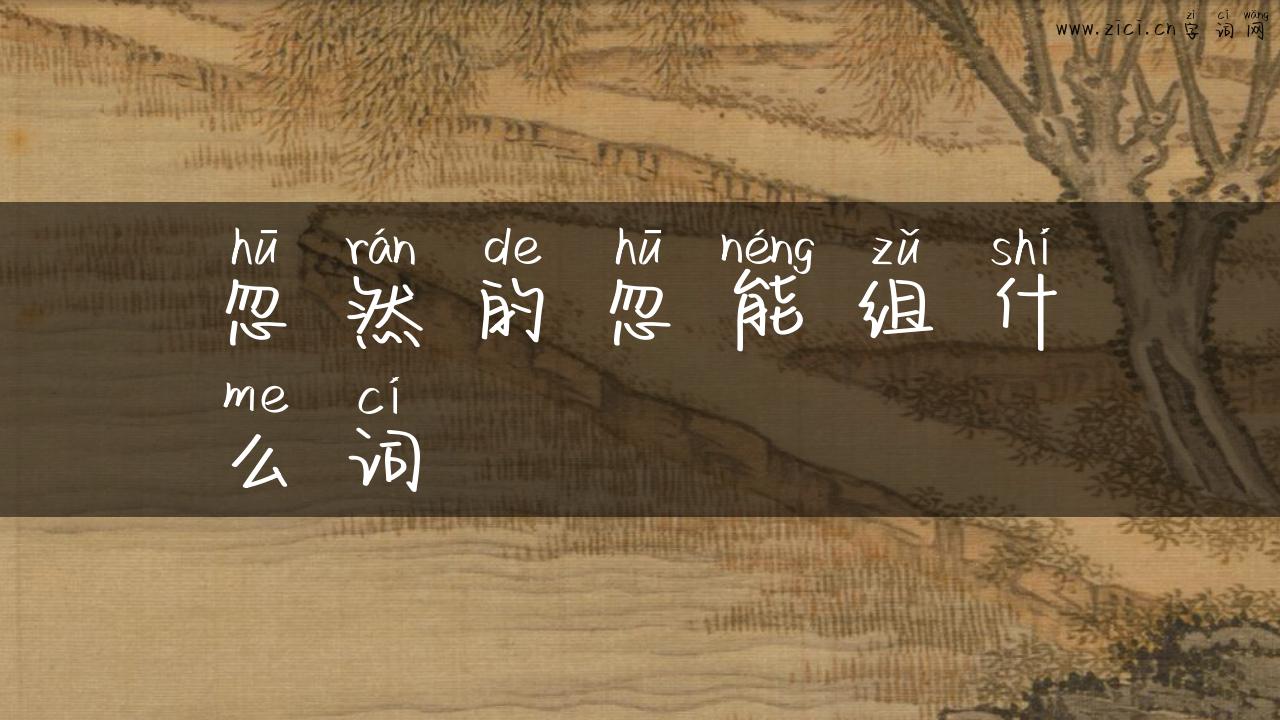 zì cí wǎng
www.zici.cn字词网
hū rán de hū néng zǔ shí
忽然的忽能组什
me cí
么词